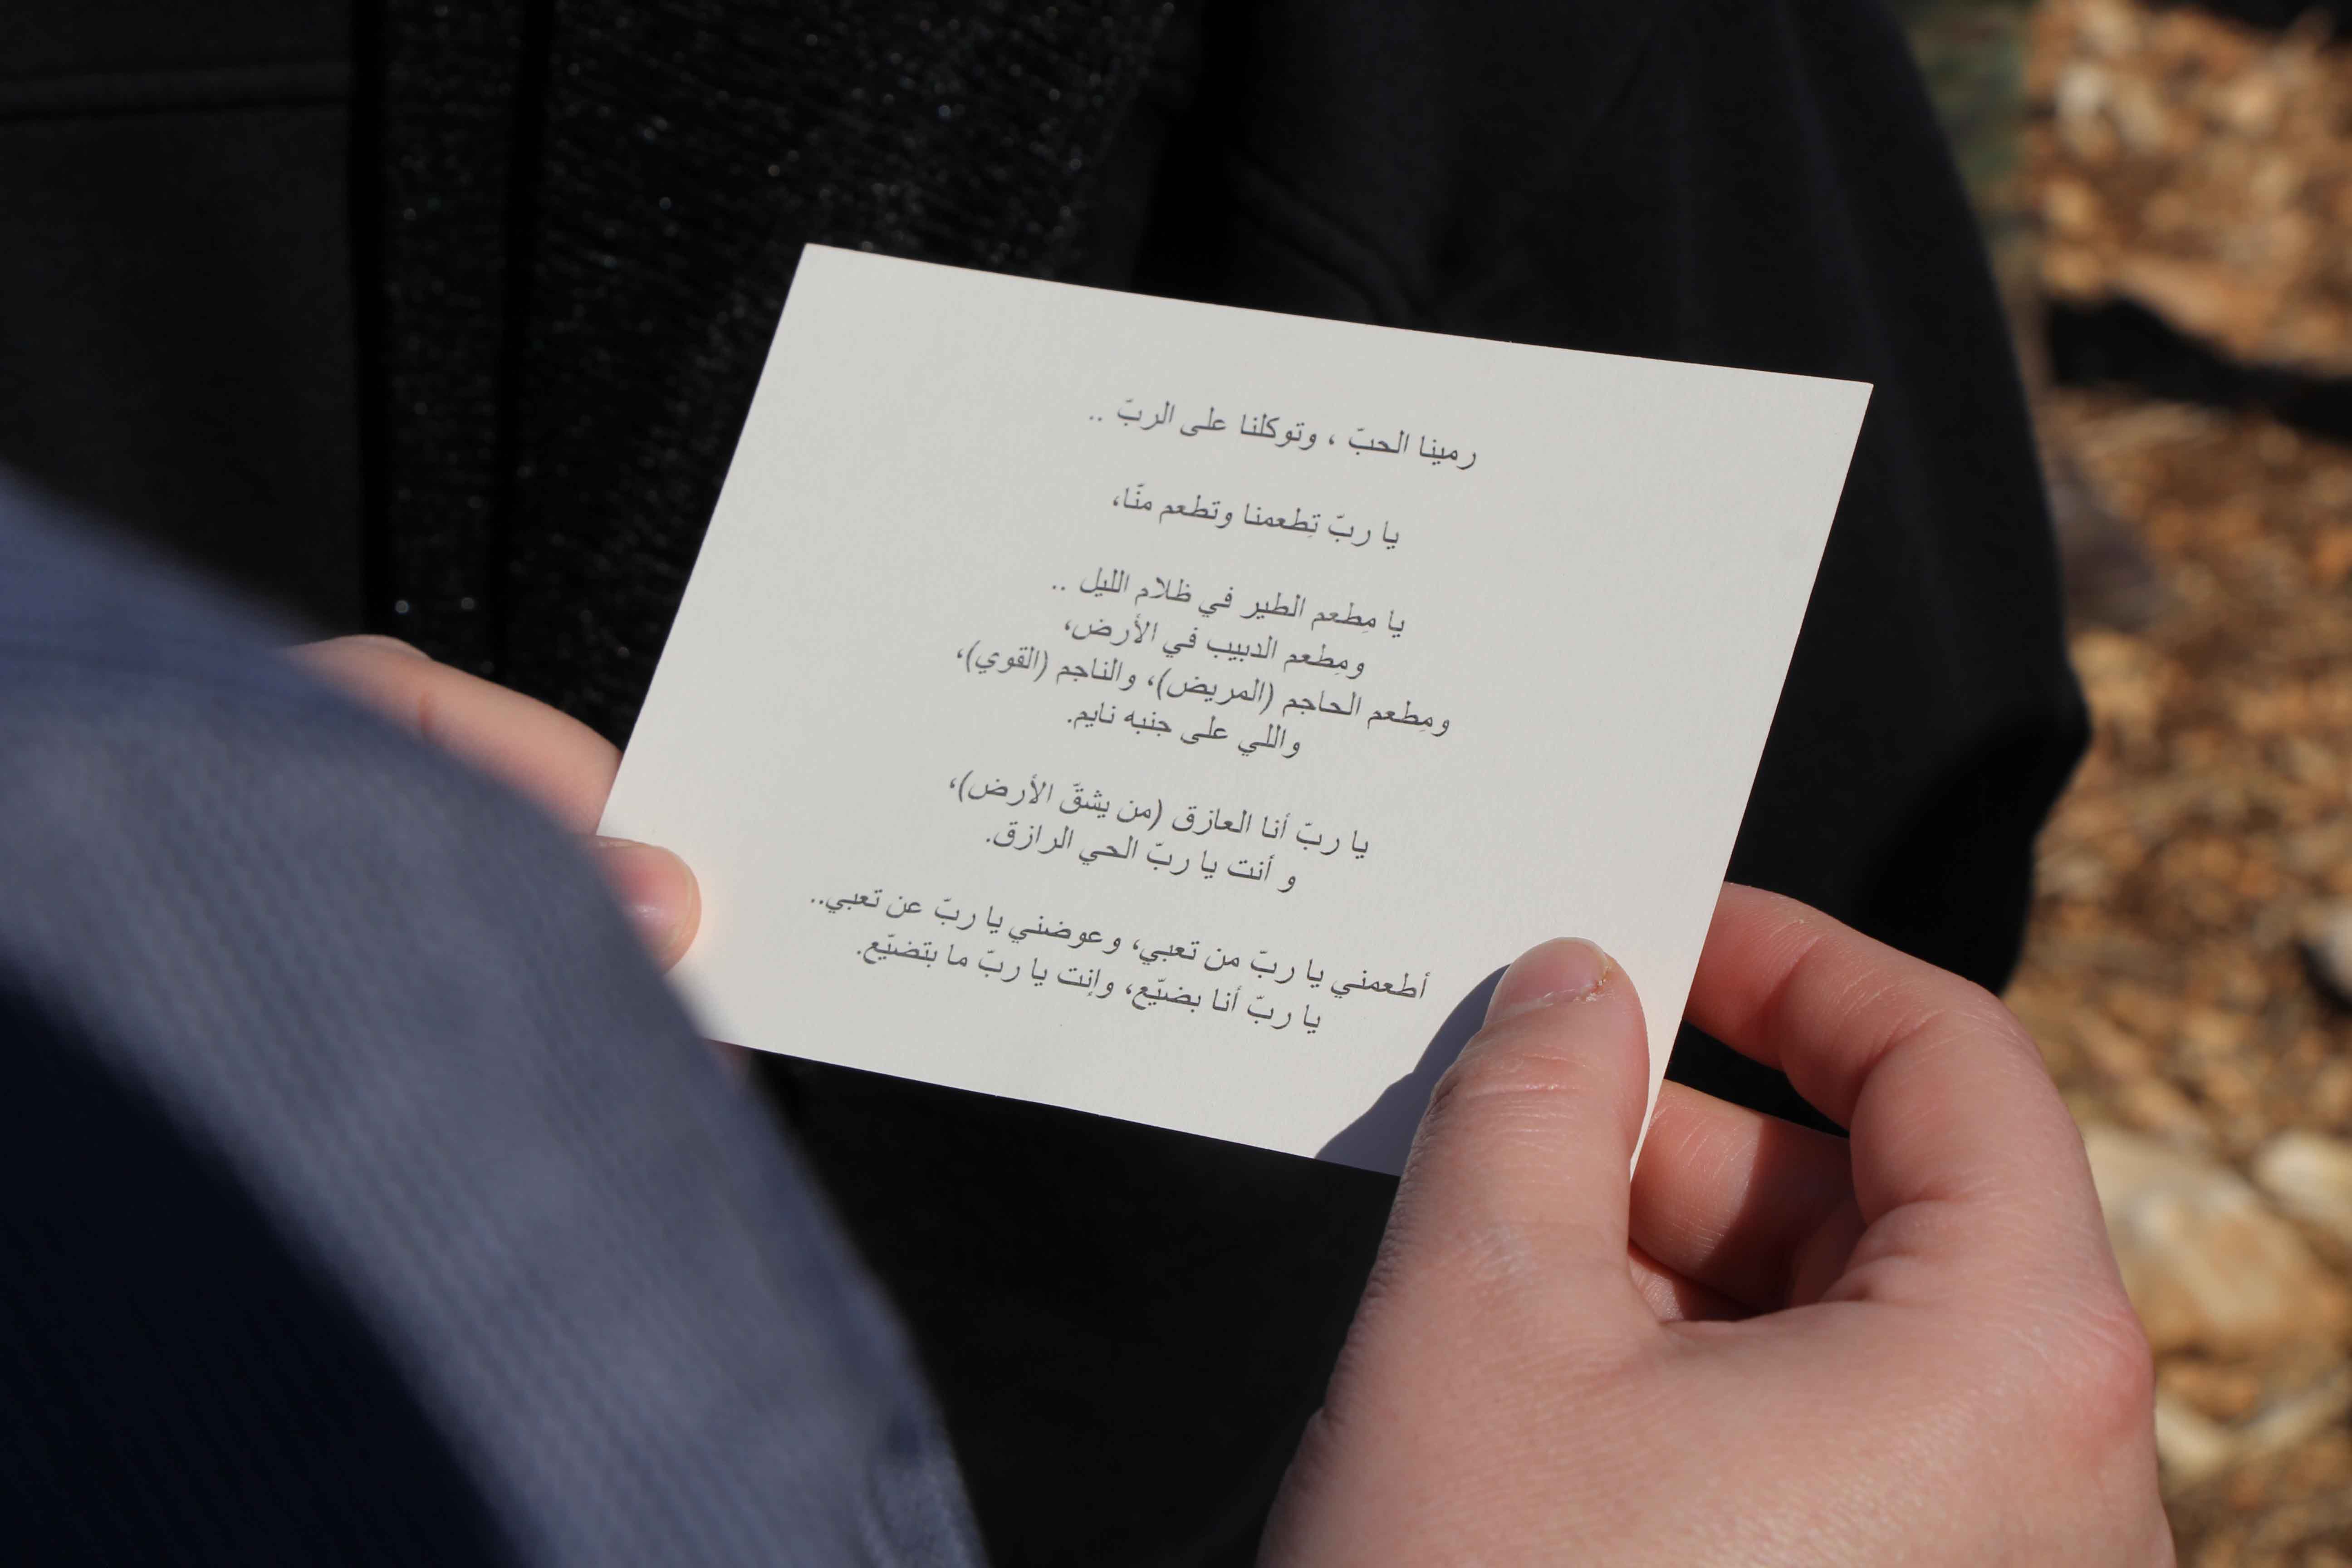 رمينا الحبّ ، وتوكلنا على الربّ ..
يا ربّ تِطعمنا وتطعم منّا،
يا مِطعم الطير في ظلام الليل ..
ومِطعم الدبيب في الأرض،
ومِطعم الحاجم (المريض)، والناجم (القوي)،
واللي على جنبه نايم.
يا ربّ أنا العازق (من يشقّ الأرض)،
و أنت يا ربّ الحي الرازق.
أطعمني يا ربّ من تعبي، وعوضني يا ربّ عن تعبي..
يا ربّ أنا بضيّع، وإنت يا ربّ ما بتضيّع.